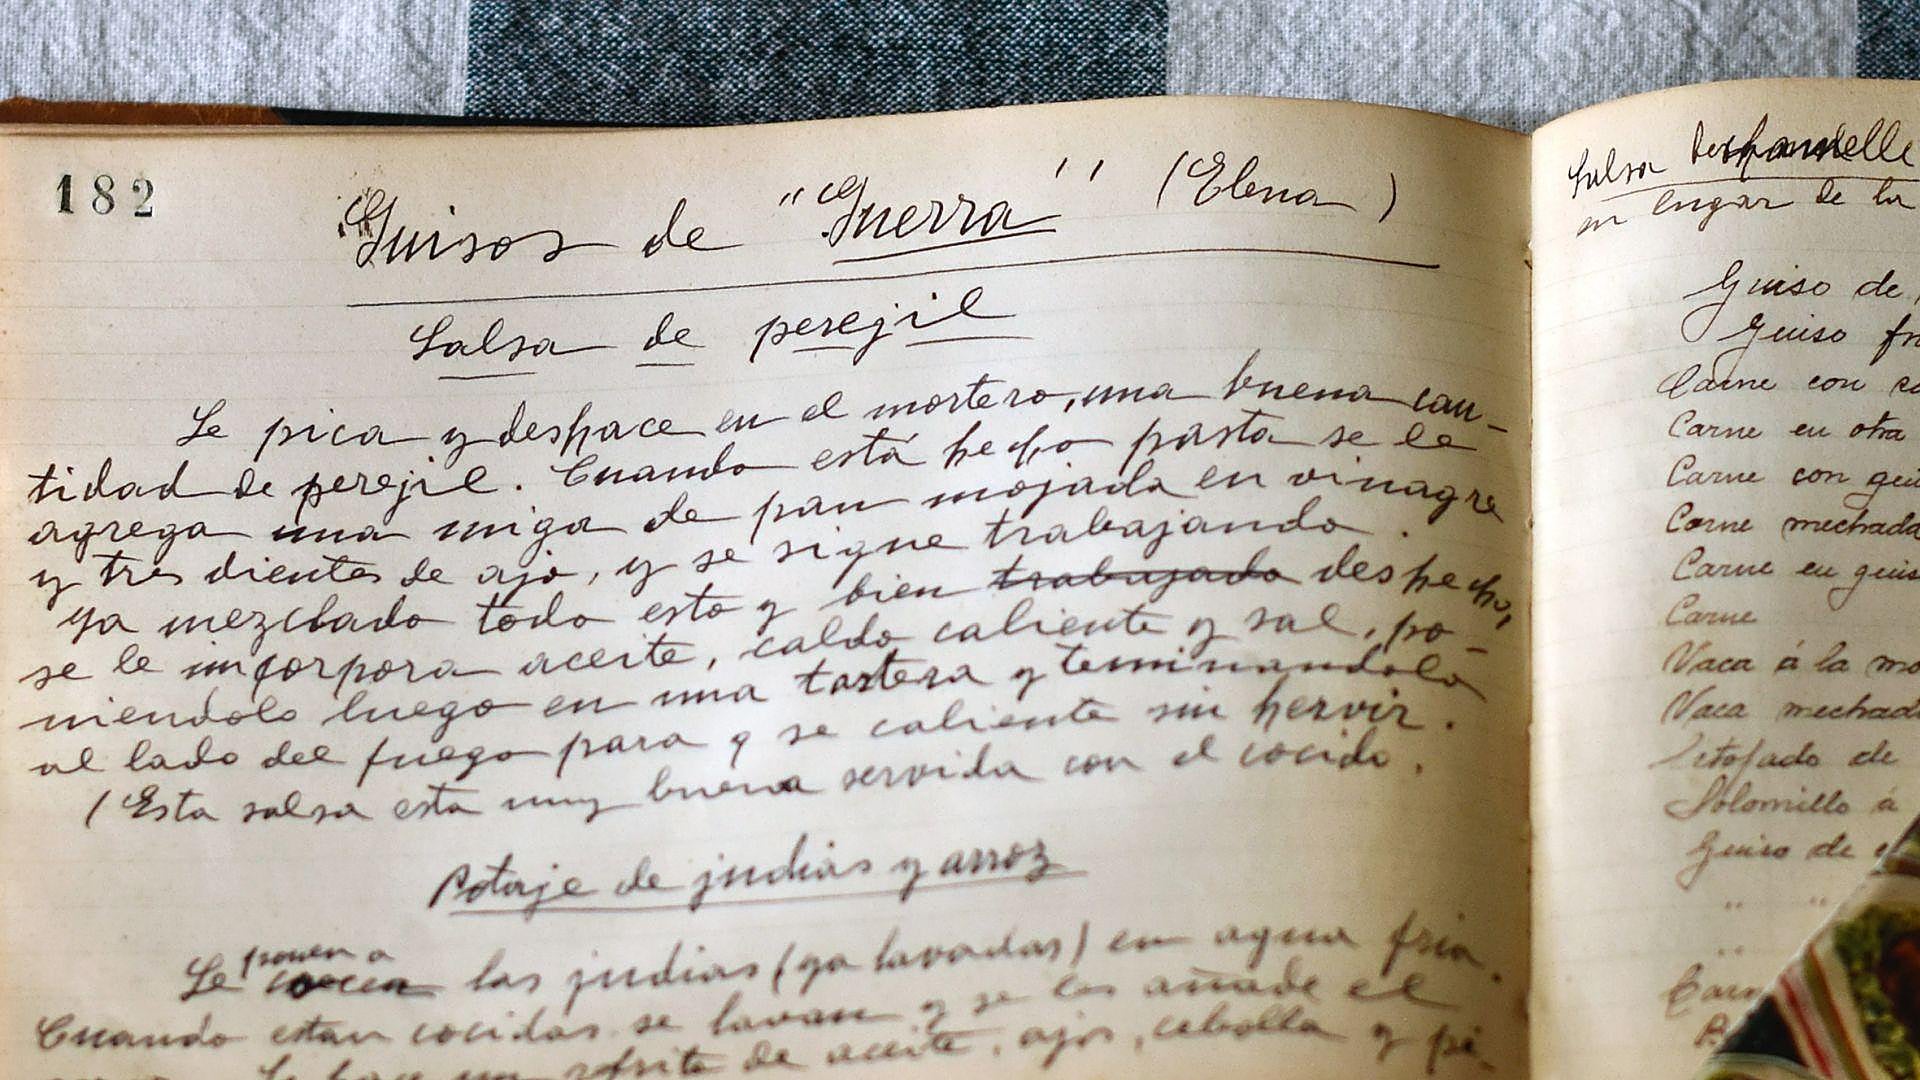 182
Guisos de "Guerra" (Elena)
Salsa de perejil
Se pica y deshace en el mortero, una buena can-
tidad de perejil. Cuando está hecho pasta se le
agrega una miga de pan mojada en vinagre
y tres dientes de ajo, y se sigue trabajando.
Ya mezclado todo esto y bien trabajado deshecho,
se le incorpora aceite, caldo caliente y sal, po-
niendolo luego en una tartera y teminandola
al lado del fuego para q se caliente sin hervir.
(Esta salsa esta muy buena servida con el cocido.
Potaje de judias y arroz
Se ponen a cocen las judias (ya lavadas) en agua fria.
Cuando estan cocidas se lavan y se les añade el
Se hace un refrito de aceite, ajos, cebolla y pi-
Salsa
en lugar de la
Guiso de
Guiso
Carne con
Carne en otra
Carne con
Carne mechada
Carne en
Carne
Vaca á la
Vaca
Estofado de
Solomillo á
Guiso de
" "
"